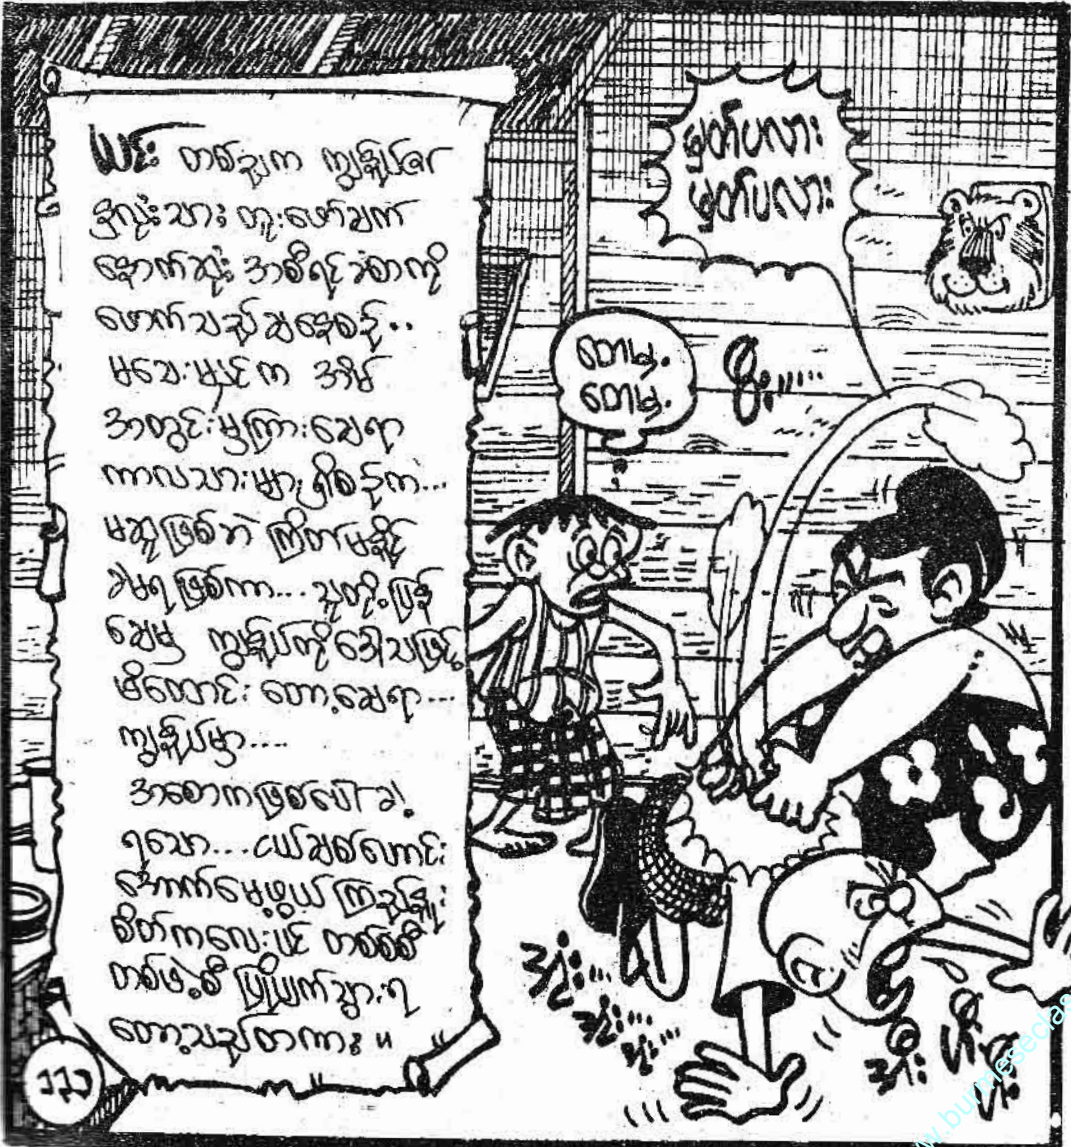 ယင်း တစ်ညက ကျွန်ုပ်၏
နှလုံးသား တူးဖော်ချက်
နောက်ဆုံး အစီရင်ခံစာကို
ဖောက်သည်ချနေစဉ်..
မသေးမျှင်က အိမ်
အတွင်းမှကြားနေရာ
ကာလသားများရှိစဉ်က...
မဆူဖြစ်ဘဲ ကြိတ်မနိုင်
ခဲမရဖြစ်ကာ... သူတို့ပြန်
နေမှ ကျွန်ုပ်ကို ဒေါသဖြင့်
မီးတောင်း တော့နေရာ...
ကျွန်ုပ်မှာ....
အစောကဖြစ်ပေါ်ခဲ့
ရသော... ငယ်ချစ်ဟောင်း
အောက်မေ့ဖွယ် ကြည်နူး
စိတ်ကလေးပင် တစ်စစီ
တစ်ဖဲ့စီ ပြိုပျက်သွားရ
တော့သည်တကား ။
မှတ်ပလား
မှတ်ပလား
သေမှ.
သေမှ.
ဗွီး......
အား...
အား...
၁၁၁